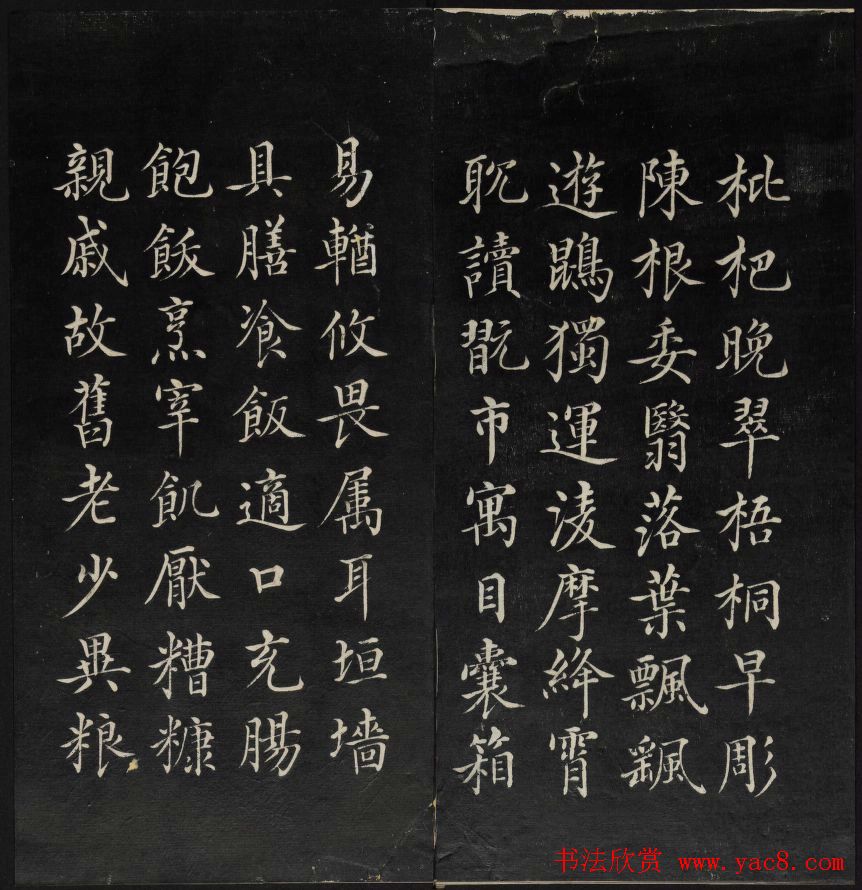 枇杷晚翠梧桐早彫
陳根委翳落葉飄颻
遊鵾獨運淩摩絳霄
耽讀翫市寓目囊箱
易輶攸畏属耳垣墻
具膳飡飯適口充腸
飽飫烹宰飢厭糟糠
親戚故舊老少異粮
书法欣赏 www.yac8.com